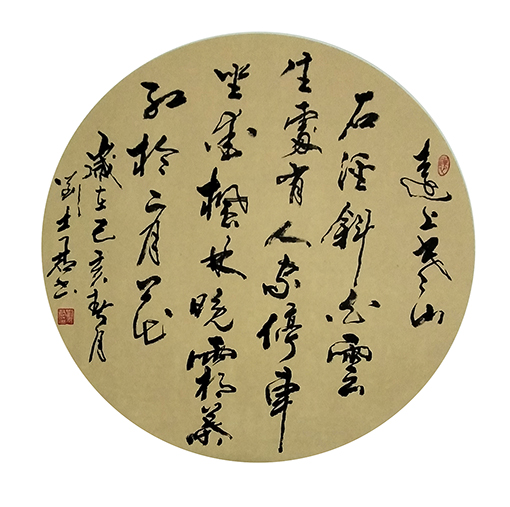 遠上寒山
石徑斜白雲
生處有人家停車
坐愛楓林晚霜葉
紅於二月花
歲在己亥春月
劉士書